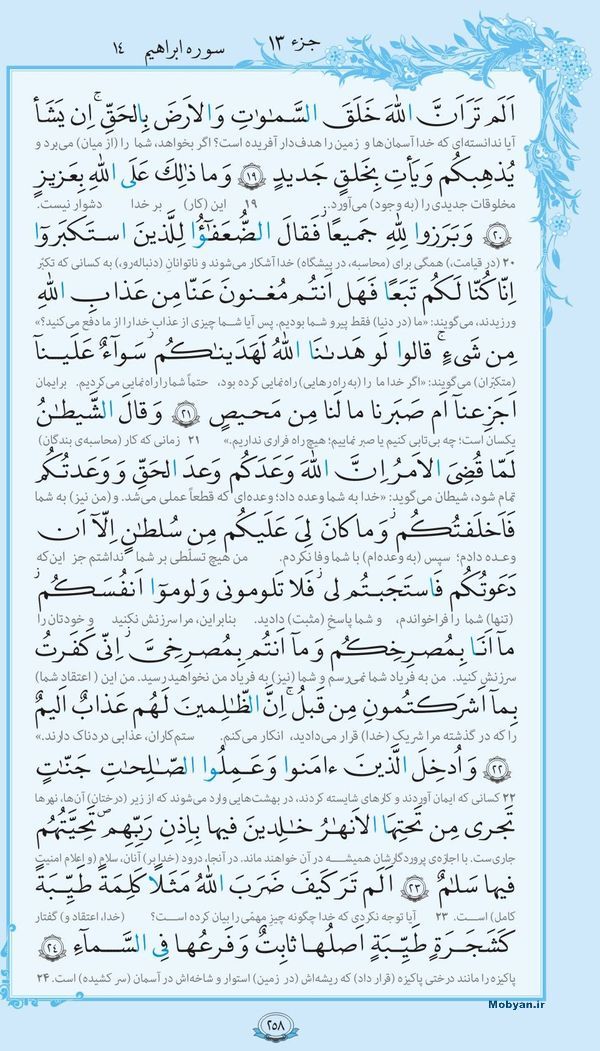 جزء ۱۳
سوره ابراهیم
۱۴
اَلَم تَرَ اَنَّ اللّٰهَ خَلَقَ السَّمٰوٰتِ وَالاَرضَ بِالحَقِّ ۚ اِن یَشَأ
آیا ندانسته‌ای که خدا آسمان‌ها و زمین را هدف‌دار آفریده است؟ اگر بخواهد، شما را (از میان) می‌برد و
یُذهِبکُم وَیَأتِ بِخَلقٍ جَدیدٍ ﴿۱۹﴾ وَ ما ذٰلِکَ عَلَی اللّٰهِ بِعَزیزٍ
مخلوقات جدیدی را (به وجود) می‌آورد. ۱۹ این (کار) بر خدا دشوار نیست.
﴿۲۰﴾ وَ بَرَزوا لِلّٰهِ جَمیعًا فَقالَ الضُّعَفٰؤُا لِلَّذینَ استَکبَروا
۲۰ (در قیامت،) همگی برای (محاسبه، در پیشگاه) خدا آشکار می‌شوند و ناتوانانِ (دنباله‌رو،) به کسانی که تکبّر
اِنّا کُنّا لَکُم تَبَعًا فَهَل اَنتُم مُغنونَ عَنّا مِن عَذابِ اللّٰهِ
ورزیدند، می‌گویند: «ما (در دنیا) فقط پیرو شما بودیم. پس آیا شما چیزی از عذاب خدا را از ما دفع می‌کنید؟»
مِن شَیءٍ ۚ قالوا لَو هَدىٰنَا اللّٰهُ لَهَدَینٰکُم ۖ سَوآءٌ عَلَینآ
(متکبّران) می‌گویند: «اگر خدا ما را (به راه‌رهایی) راه‌نمایی کرده بود، حتماً شما را راه‌نمایی می‌کردیم. برایمان
اَجَزِعنآ اَم صَبَرنا ما لَنا مِن مَحیصٍ ﴿۲۱﴾ وَ قالَ الشَّیطٰنُ
یکسان است؛ چه بی‌تابی کنیم یا صبر نماییم؛ هیچ راه فراری نداریم.» ۲۱ زمانی که کار (محاسبه‌ی بندگان)
لَمّا قُضِیَ الاَمرُ اِنَّ اللّٰهَ وَعَدَکُم وَعدَ الحَقِّ وَ وَعَدتُکُم
تمام شود، شیطان می‌گوید: «خدا به شما وعده داد؛ وعده‌ای که قطعاً عملی می‌شد. و (من نیز) به شما
فَاَخلَفتُکُم ۖ وَ ما کانَ لِیَ عَلَیکُم مِن سُلطٰنٍ اِلّآ اَن
وعده دادم؛ سپس (به وعده‌ام) با شما وفا نکردم. من هیچ تسلّطی بر شما نداشتم جز این‌که
دَعَوتُکُم فَاستَجَبتُم لی ۖ فَلا تَلومونی وَ لوموا اَنفُسَکُم ۖ
(تنها) شما را فراخواندم، و شما پاسخِ (مثبت) دادید. بنابراین، مرا سرزنش نکنید و خودتان را
مآ اَنَا بِمُصرِخِکُم وَ مآ اَنتُم بِمُصرِخِیَّ ۖ اِنّی کَفَرتُ
سرزنش کنید. من به فریاد شما نمی‌رسم و شما (نیز) به فریاد من نخواهید رسید. من این (اعتقاد شما)
بِمآ اَشرَکتُمونِ مِن قَبلُ ۗ اِنَّ الظّٰلِمینَ لَهُم عَذابٌ اَلیمٌ
را که در گذشته مرا شریک (خدا) قرار می‌دادید، انکار می‌کنم. ستم‌کاران، عذابی دردناک دارند.»
﴿۲۲﴾ وَ اُدخِلَ الَّذینَ ءامَنوا وَ عَمِلُوا الصّٰلِحٰتِ جَنّٰتٍ
۲۲ کسانی که ایمان آوردند و کارهای شایسته کردند، در بهشت‌هایی وارد می‌شوند که از زیر (درختان) آن‌ها، نهرها
تَجری مِن تَحتِهَا الاَنهٰرُ خٰلِدینَ فیها بِاِذنِ رَبِّهِم ۖ تَحِیَّتُهُم
جاری‌ست. با اجازه‌ی پروردگارشان همیشه در آن خواهند ماند. در آنجا، درود (خدا بر) آنان، سلام (و اعلام امنیت
فیها سَلٰمٌ ﴿۲۳﴾ اَلَم تَرَ کَیفَ ضَرَبَ اللّٰهُ مَثَلًا کَلِمَةً طَیِّبَةً
کامل) است. ۲۳ آیا توجه نکردی که خدا چگونه چیز مهمّی را بیان کرده است؟ (خدا، اعتقاد و) گفتار
کَشَجَرَةٍ طَیِّبَةٍ اَصلُها ثابِتٌ وَ فَرعُها فِی السَّمآءِ ﴿۲۴﴾
پاکیزه را مانند درختی پاکیزه (قرار داد) که ریشه‌اش (در زمین) استوار و شاخه‌اش در آسمان (سر کشیده) است. ۲۴
Mobyan.ir
۲۵۸